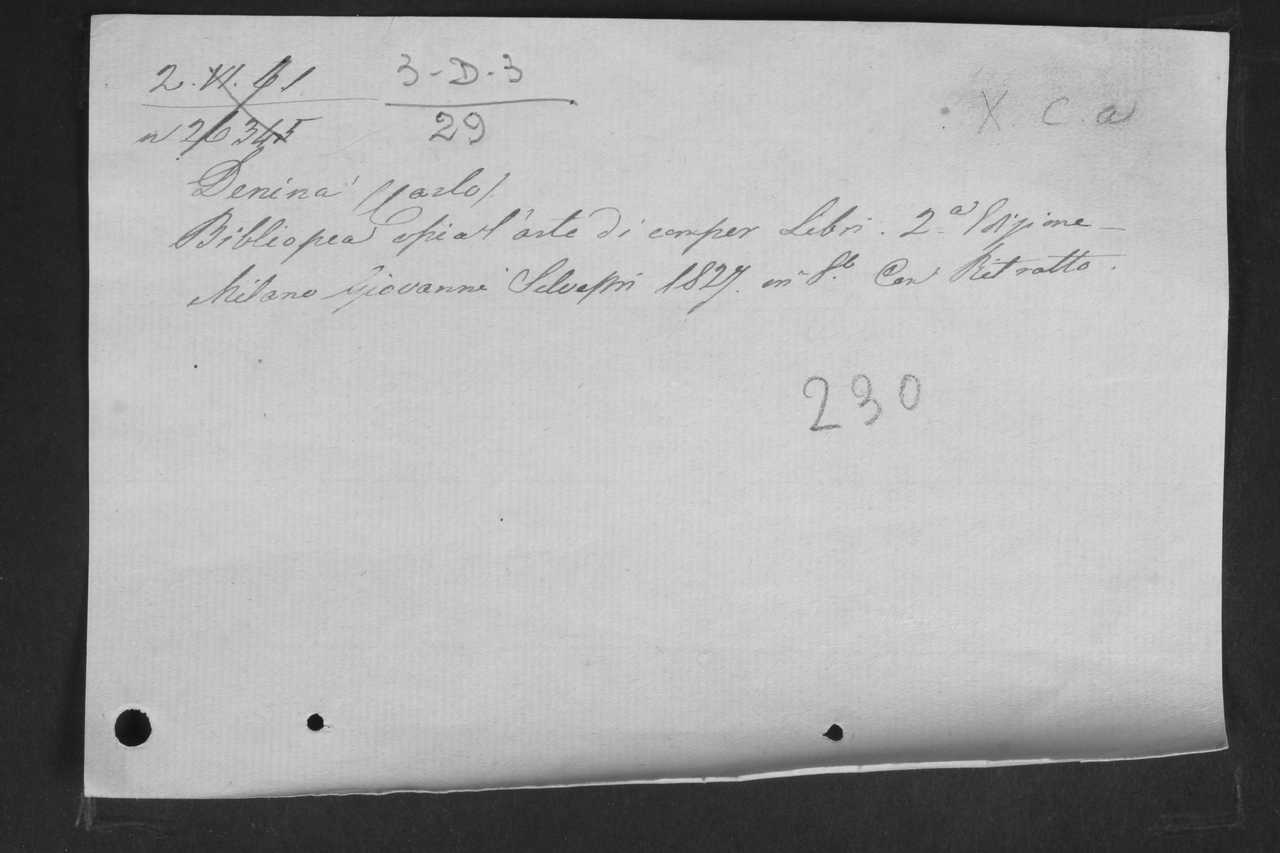 2. VI. 61    3-D-3
n 26345    29
X. C. a
Denina (Carlo)
Bibliopea o sia l'arte di comper Libri. 2.a Edizione
Milano Giovanni Silvestri 1827. in 8.o Con Ritratto.
230